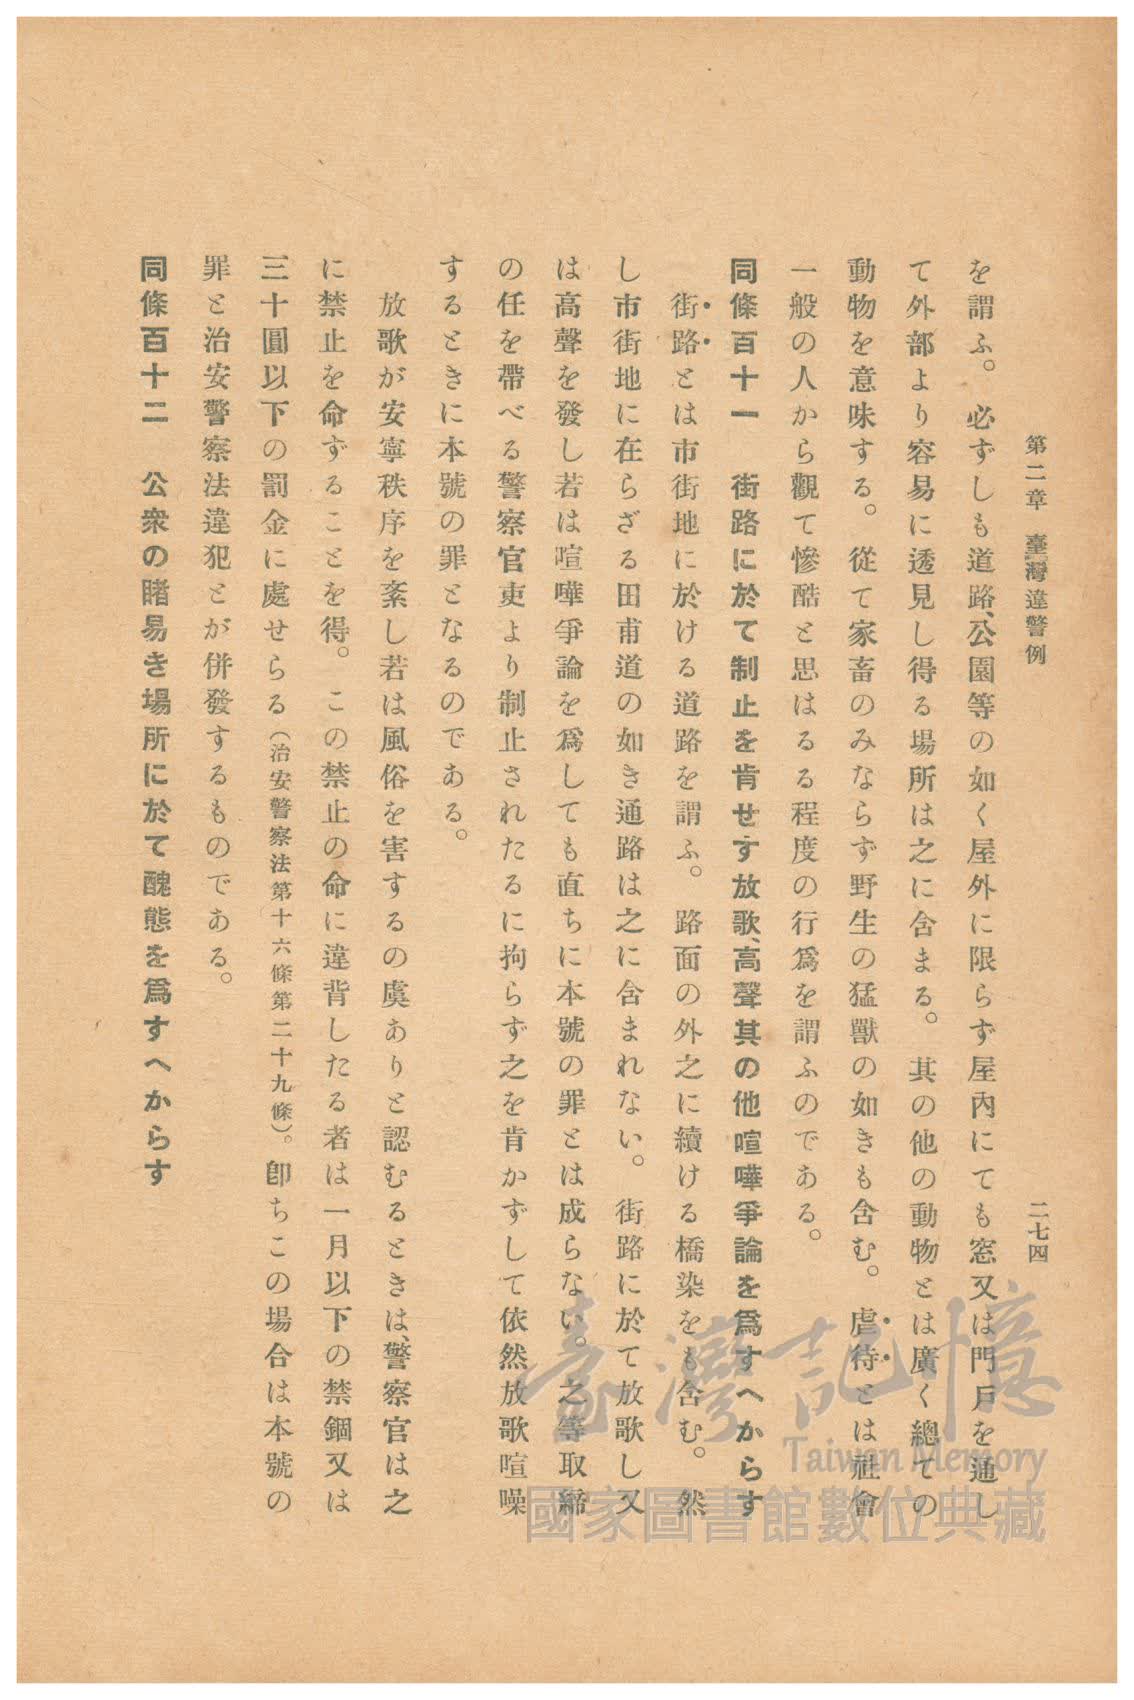 第二章　臺灣違警例
二七四
を謂ふ。必ずしも道路、公園等の如く屋外に限らず屋內にても窓又は門戶を通し
て外部より容易に透見し得る場所は之に含まる。其の他の動物とは廣く總ての
動物を意味する。從て家畜のみならず野生の猛獸の如きも含む。虐待とは社會
一般の人から觀て慘酷と思はるる程度の行爲を謂ふのである。
同條百十一　街路に於て制止を肯せす放歌、高聲其の他喧嘩爭論を爲すへからす
街路とは市街地に於ける道路を謂ふ。路面の外之に續ける橋染をも含む。然
し市街地に在らざる田甫道の如き通路は之に含まれない。街路に於て放歌し又
は高聲を發し若は喧嘩爭論を爲しても直ちに本號の罪とは成らない。之等取締
の任を帶べる警察官吏より制止されたるに拘らず之を肯かずして依然放歌喧噪
するときに本號の罪となるのである。
放歌が安寧秩序を紊し若は風俗を害するの虞ありと認むるときは、警察官は之
に禁止を命ずることを得。この禁止の命に違背したる者は一月以下の禁錮又は
三十圓以下の罰金に處せらる（治安警察法第十六條第二十九條）。卽ちこの場合は本號の
罪と治安警察法違犯とが併發するものである。
同條百十二　公衆の睹易き場所に於て醜態を爲すへからす
臺灣記憶
Taiwan Memory
國家圖書館數位典藏